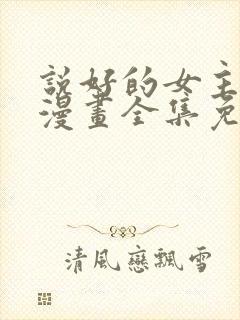 說好的女主
漫畫全集免
清風戀飄雪